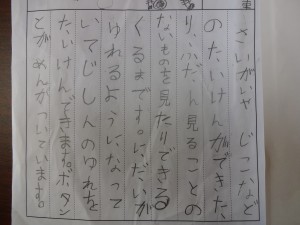 さいがいや じこなど
のたいけんができた
り、ふだん見ることの
ないものを見たりできる
くるまです。にだいが
ゆれるようになって
いてじしんのゆれを
たいけんできます。ボタン
とがめんがついています。